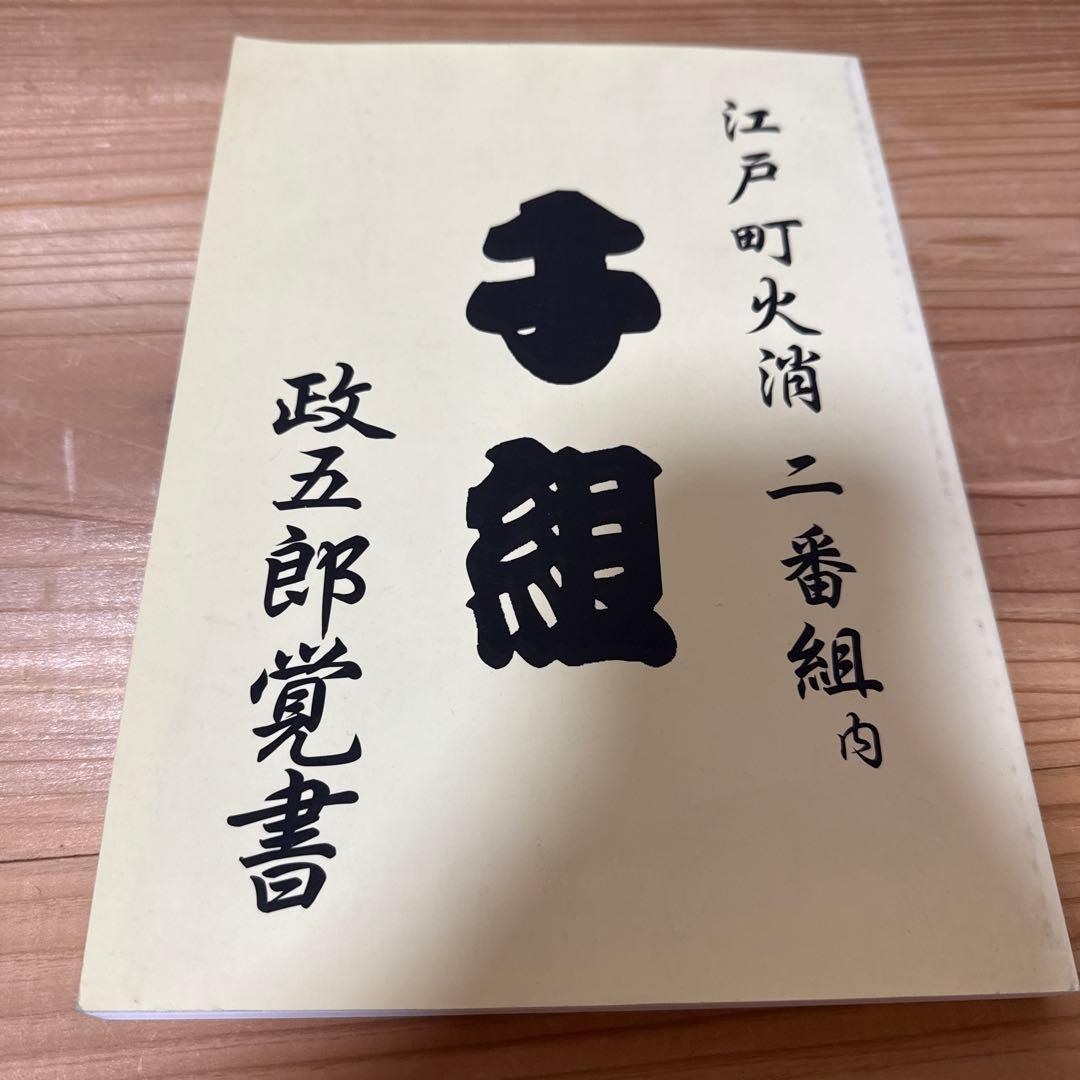 江戸町火消 二番組内
千組
政五郎覚書